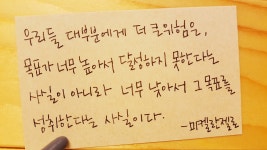 우리들 대부분에게 더 큰 위험은,
목표가 너무 높아서 달성하지 못한다는
사실이 아니라 너무 낮아서 그 목표를
성취한다는 사실이다.
-미켈란젤로